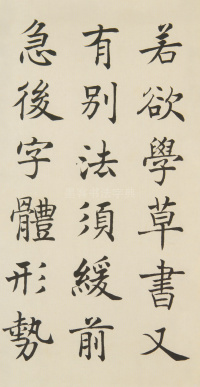 若欲學草書又
有别法須緩前
急後字體形勢